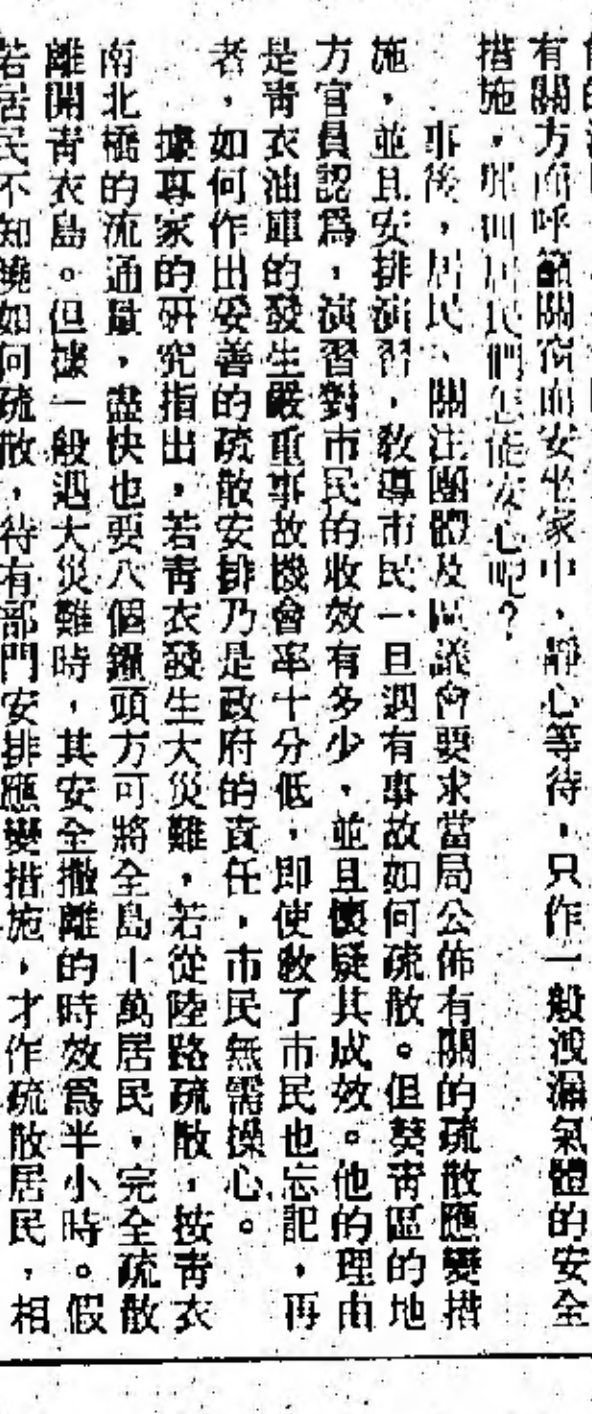 有關方面呼籲關窗而安坐家中，靜心等待，只作一般洩漏氣體的安全
措施，那叫居民們怎能安心呢？
事後，居民、關注團體及區議會要求當局公佈有關的疏散應變措
施，並且安排演習，敎導市民一旦遇有事故如何疏散。但葵青區的地
方官員認爲，演習對市民的收效有多少，並且懷疑其成效。他的理由
是青衣油庫的發生嚴重事故機會率十分低，即使敎了市民也忘記，再
者，如何作出妥善的疏散安排乃是政府的責任，市民無需操心。
據專家的研究指出，若青衣發生大災難，若從陸路疏散，按青衣
南北橋的流通量，盡快也要八個鐘頭方可將全島十萬居民，完全疏散
離開青衣島。但據一般遇大災難時，其安全撤離的時效爲半小時。假
若居民不知曉如何疏散，待有部門安排應變措施，才作疏散居民，相